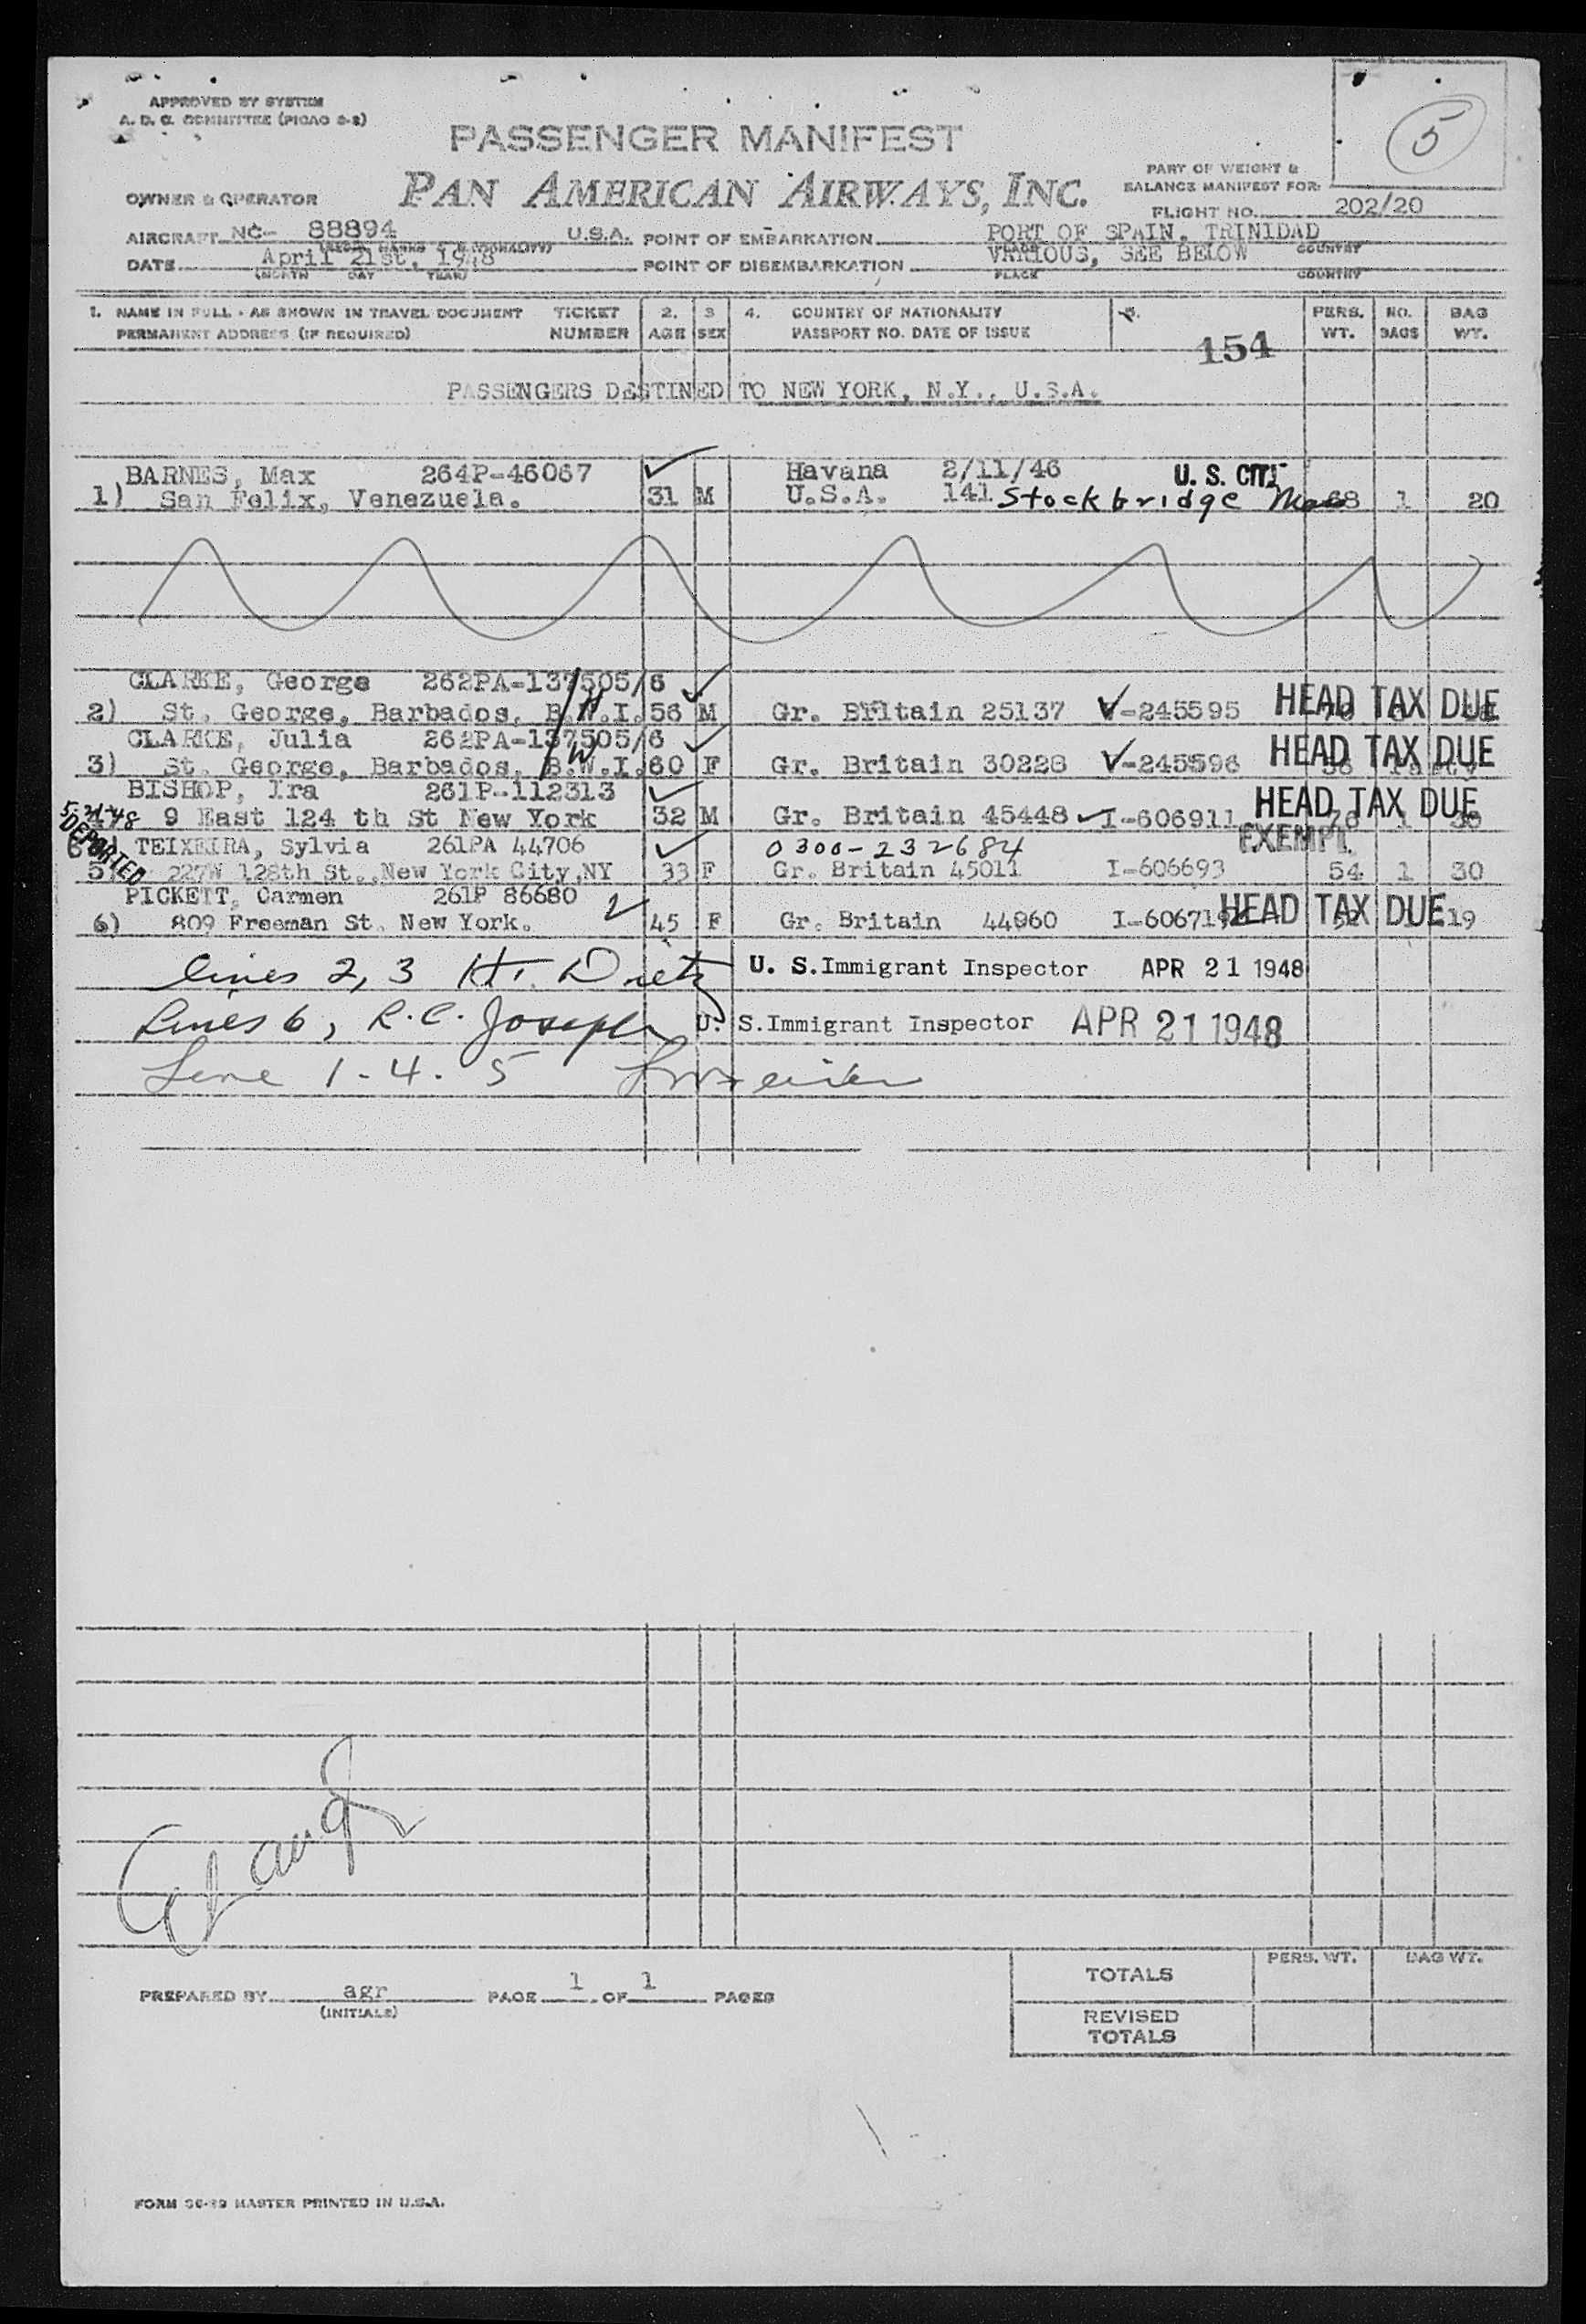 APPROVED BY SYSTEM
A. D. C. COMMITTEE (PICAO 2-2)
5
PASSENGER MANIFEST
PAN AMERICAN AIRWAYS, INC.
PART OF WEIGHT &
BALANCE MANIFEST FOR:
OWNER & OPERATOR
FLIGHT NO. 202/20
AIRCRAFT NC- 88894 U.S.A. POINT OF EMBARKATION PORT OF SPAIN, TRINIDAD
PLACE COUNTRY
DATE April 21st, 1948 POINT OF DISEMBARKATION VARIOUS, SEE BELOW
(MONTH DAY YEAR) PLACE COUNTRY
1. NAME IN FULL - AS SHOWN IN TRAVEL DOCUMENT TICKET 2. 3 4. COUNTRY OF NATIONALITY 5. PERS. NO. BAG
PERMANENT ADDRESS (IF REQUIRED) NUMBER AGE SEX PASSPORT NO. DATE OF ISSUE WT. BAGS WT.
154
PASSENGERS DESTINED TO NEW YORK, N.Y., U.S.A.
BARNES, Max 264P-46067 Havana 2/11/46 U. S. CITI
1) San Felix, Venezuela. 31 M U.S.A. 141 Stockbridge Mass 68 1 20
CLARKE, George 262PA-137505/6
2) St. George, Barbados, B.W.I. 56 M Gr. Britain 25137 V-245595 HEAD TAX DUE
CLARKE, Julia 262PA-137505/6
3) St. George, Barbados, B.W.I. 60 F Gr. Britain 30228 V-245596 HEAD TAX DUE
BISHOP, Ira 261P-112313
9 East 124 th St New York 32 M Gr. Britain 45448 I-606911 76 1 30 HEAD TAX DUE
DEPORTED
EXEMPT.
TEIXEIRA, Sylvia 261PA 44706 0300-232684
5) 227W 128th St.,New York City,NY 33 F Gr. Britain 45011 I-606693 54 1 30
PICKETT, Carmen 261P 86680
6) 809 Freeman St. New York. 45 F Gr. Britain 44860 I-606719 HEAD TAX DUE 19
lines 2, 3 U. S. Immigrant Inspector APR 21 1948
Lines 6, R.C. Joseph U. S. Immigrant Inspector APR 21 1948
Line 1-4. 5
PREPARED BY agr PAGE 1 OF 1 PAGES
(INITIALS)
PERS. WT. BAG WT.
TOTALS
REVISED
TOTALS
FORM 36-29 MASTER PRINTED IN U.S.A.